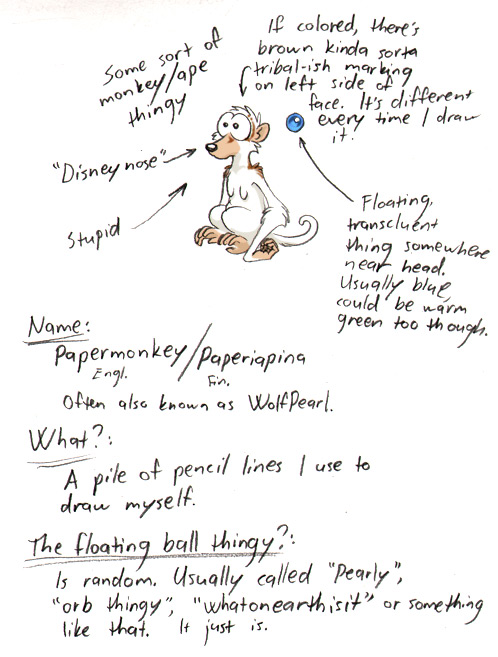 Some sort of
monkey/ape
thingy
If colored, there's
brown kinda sorta
tribal-ish marking
on left side of
face. It's different
every time I draw
it.
"Disney nose"
Stupid
Floating,
transcluent
thing somewhere
near head.
Usually blue,
could be warm
green too though.
Name:
Papermonkey/Paperiapina
Engl. Fin.
Often also known as WolfPearl.
What?:
A pile of pencil lines I use to
draw myself.
The floating ball thingy?:
Is random. Usually called "Pearly",
"orb thingy", "whatonearthisit" or something
like that. It just is.